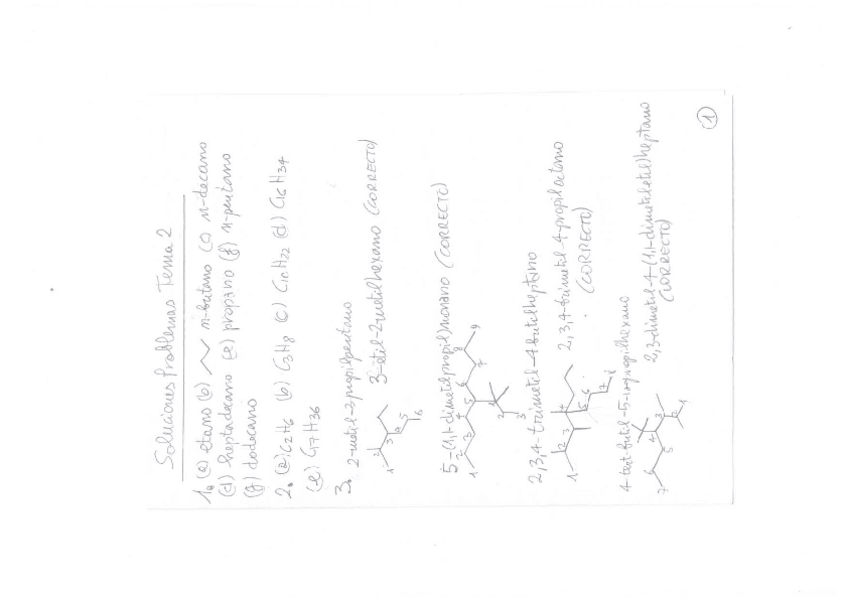 Soluciones Problemas Tema 2
1. (a) etano (b) n-butano (c) n-decano
(d) heptadecano (e) propano (f) n-pentano
(g) dodecano
2. (a) C2H6 (b) C3H8 (c) C10H22 (d) C16H34
(e) C17H36
3. 2-metil-3-propilpentano
3-etil-2-metilhexano (CORRECTO)
1 2 3 4 5 6
5-(1,1-dimetilpropil)nonano (CORRECTO)
1 2 3 4 5 6 7 8 9
1 2 3
2,3,4-trimetil-4-butilheptano
2,3,4-trimetil-4-propiloctano
(CORRECTO)
1 2 3 4 5 6 7 8
4-tert-butil-5-isopropilhexano
2,3-dimetil-4-(1,1-dimetiletil)heptano
(CORRECTO)
7 6 5 4 3 2 1
1